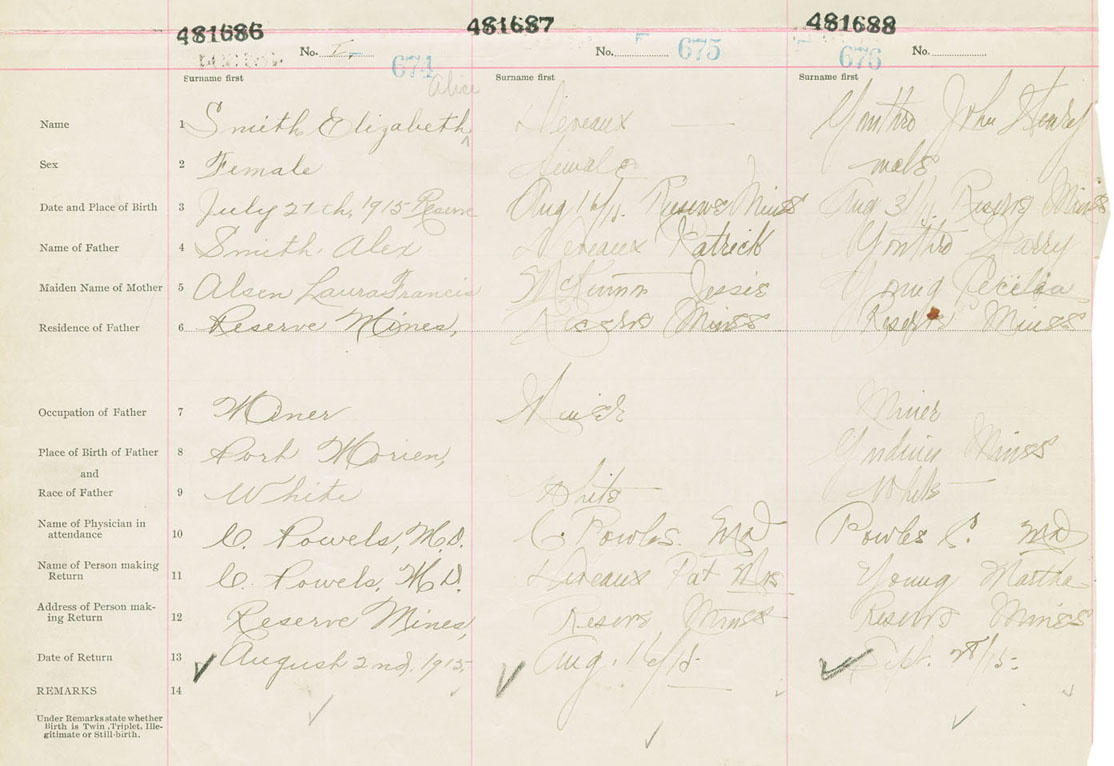 481686 481687 481688
No. I, No. No.
674 675 676
Surname first Surname first Surname first
Alice
Name 1 Smith Elizabeth ^ Deveaux — John Henry
Sex 2 Female Female male
Date and Place of Birth 3 July 27th, 1915 Reserve Aug 16/15. Reserve Mines Aug 31/15. Reserve Mines
Name of Father 4 Smith Alex Deveaux Patrick Harry
Maiden Name of Mother 5 Alsen Laura Francis McKinnon Jessie Young Cecelia
Residence of Father 6 Reserve Mines, Reserve Mines Reserve Mines
Occupation of Father 7 Miner Miner Miner
Place of Birth of Father 8 Port Morien, Mines
and
Race of Father 9 White White White
Name of Physician in
attendance 10 C. Powels, M.D. C Powles. MD Powles C. MD
Name of Person making
Return 11 C. Powels, M.D. Deveaux Pat Mrs Young Martha
Address of Person mak-
ing Return 12 Reserve Mines, Reserve Mines Reserve Mines
Date of Return 13 August 2nd, 1915 Aug. 16/15. Sept. 28/15.
REMARKS 14
Under Remarks state whether
Birth is Twin, Triplet, Ille-
gitimate or Still-birth.